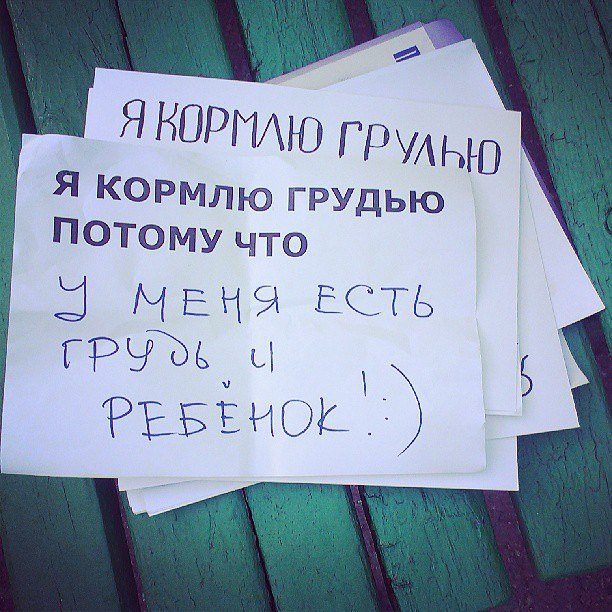 Я КОРМЛЮ ГРУДЬЮ
Я КОРМЛЮ ГРУДЬЮ
ПОТОМУ ЧТО
У МЕНЯ ЕСТЬ
ГРУДЬ И
РЕБЁНОК! :)